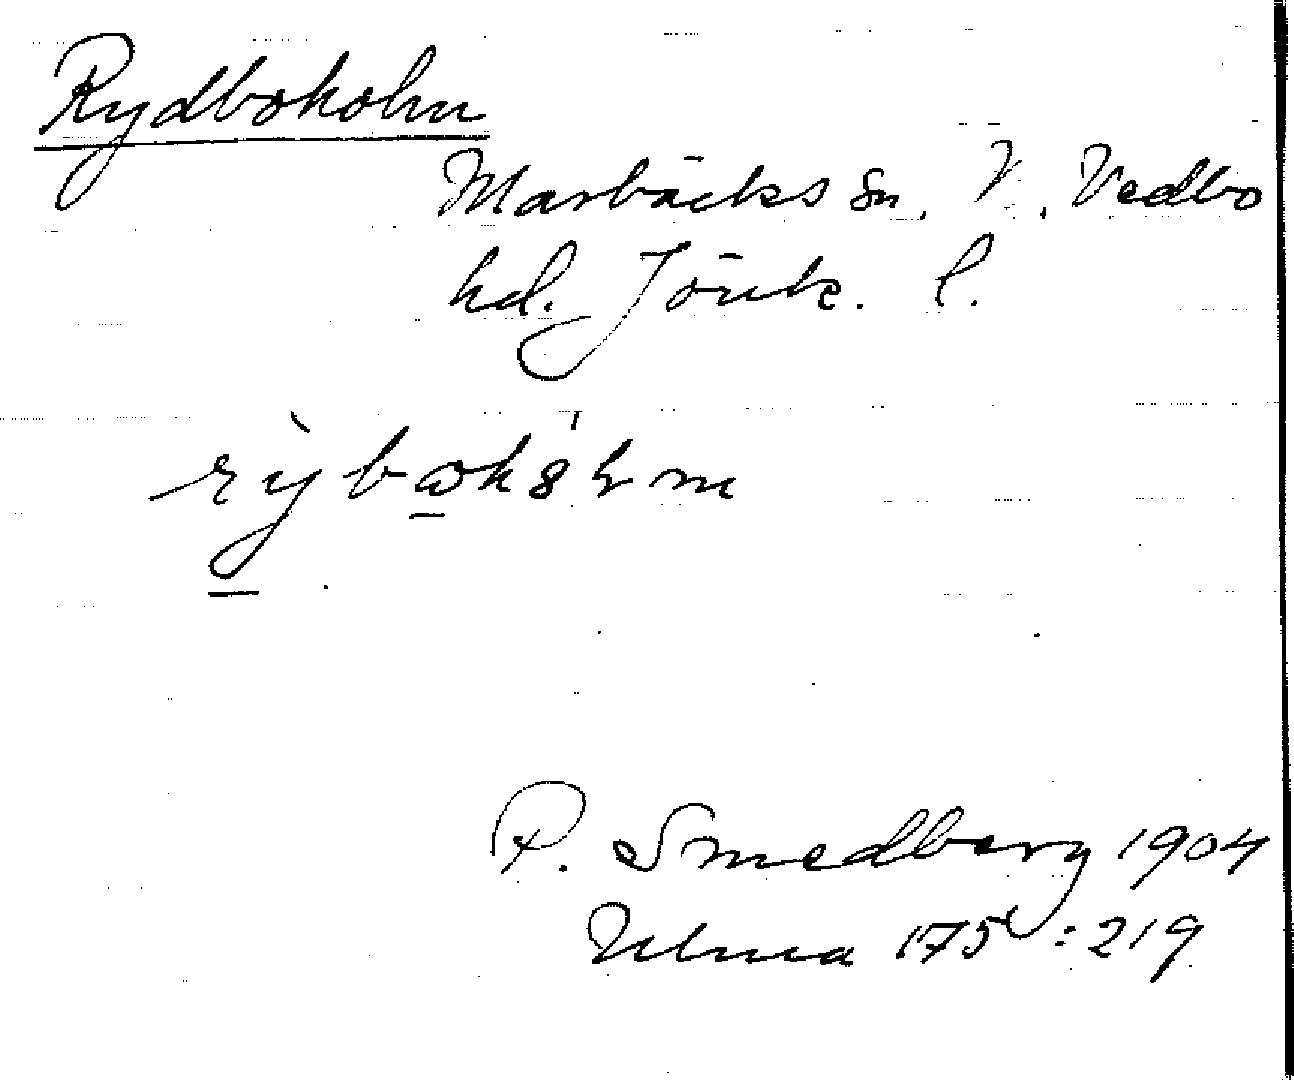 Rydboholm
Marbäcks sn, N. Vedbo
hd. Jönk. l.
P. Smedberg 1904
Ulma 175 : 219